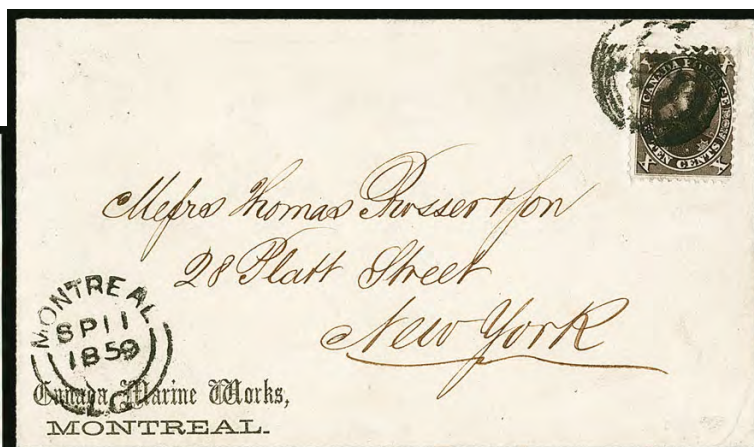 X X
CANADA POSTAGE
TEN CENTS
X X
Messrs Thomas Prosser & Son
28 Platt Street
New York
MONTREAL
SP 11
1859
L.C.
Canada Marine Works,
MONTREAL.